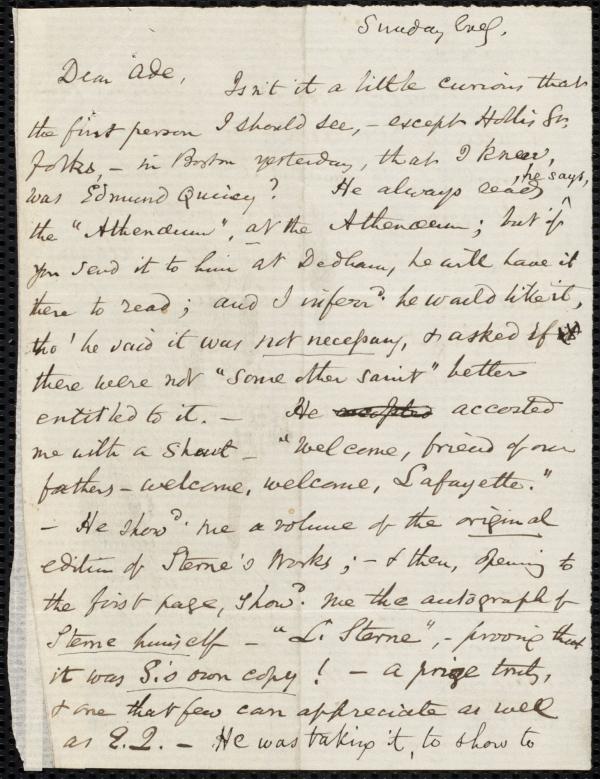 Sunday Evg.
Dear Ade, Isn't it a little curious that
the first person I should see, - except Hollis St.
folks, - in Boston yesterday, that I knew,
was Edmund Quincy? He always reads
, he says,
the "Athenæum", at the Athenæum; but if
you send it to him at Dedham, he will have it
there to read; and I inferrd. he would like it,
tho' he said it was not necessary, & asked if
there were not "some other saint" better
entitled to it. - He accosted
me with a shout - "Welcome, friend of our
fathers - welcome, welcome, Lafayette."
- He showd. me a volume of the original
edition of Sterne's Works; - & then, opening to
the first page, showd. me the autograph of
Sterne himself - "L. Sterne", - proving that
it was S.'s own copy! - a prize truly,
& one that few can appreciate as well
as E.Q. - He was taking it, to show to